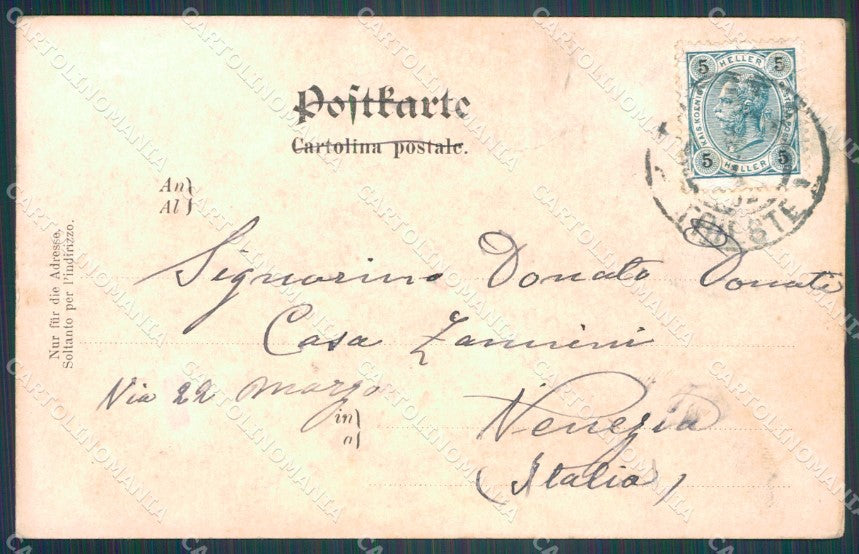 Postkarte
Cartolina postale.
5 HELLER 5
5 HELLER 5
TRIESTE
An
Al
Nur für die Adresse.
Soltanto per l'indirizzo.
Signorino Donato Donati
Casa Zannini
Via 22 marzo
in
a
Venezia
(Italia)
CARTOLINOMANIA